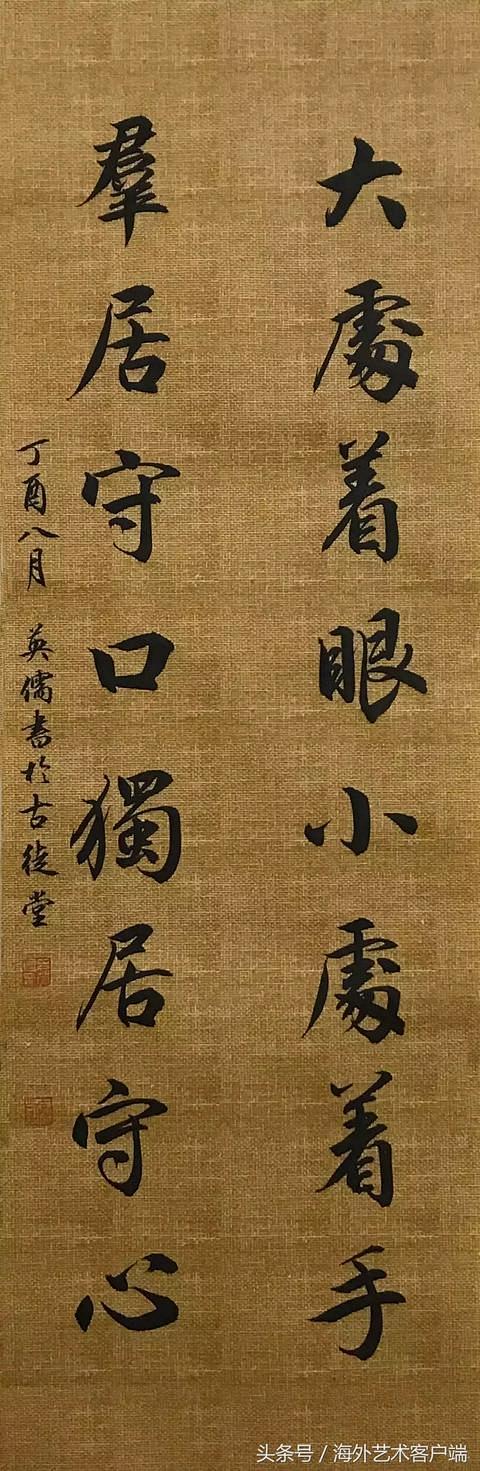 大處着眼小處着手
羣居守口獨居守心
丁酉八月 英儒書於古徒堂
头条号/海外艺术客户端